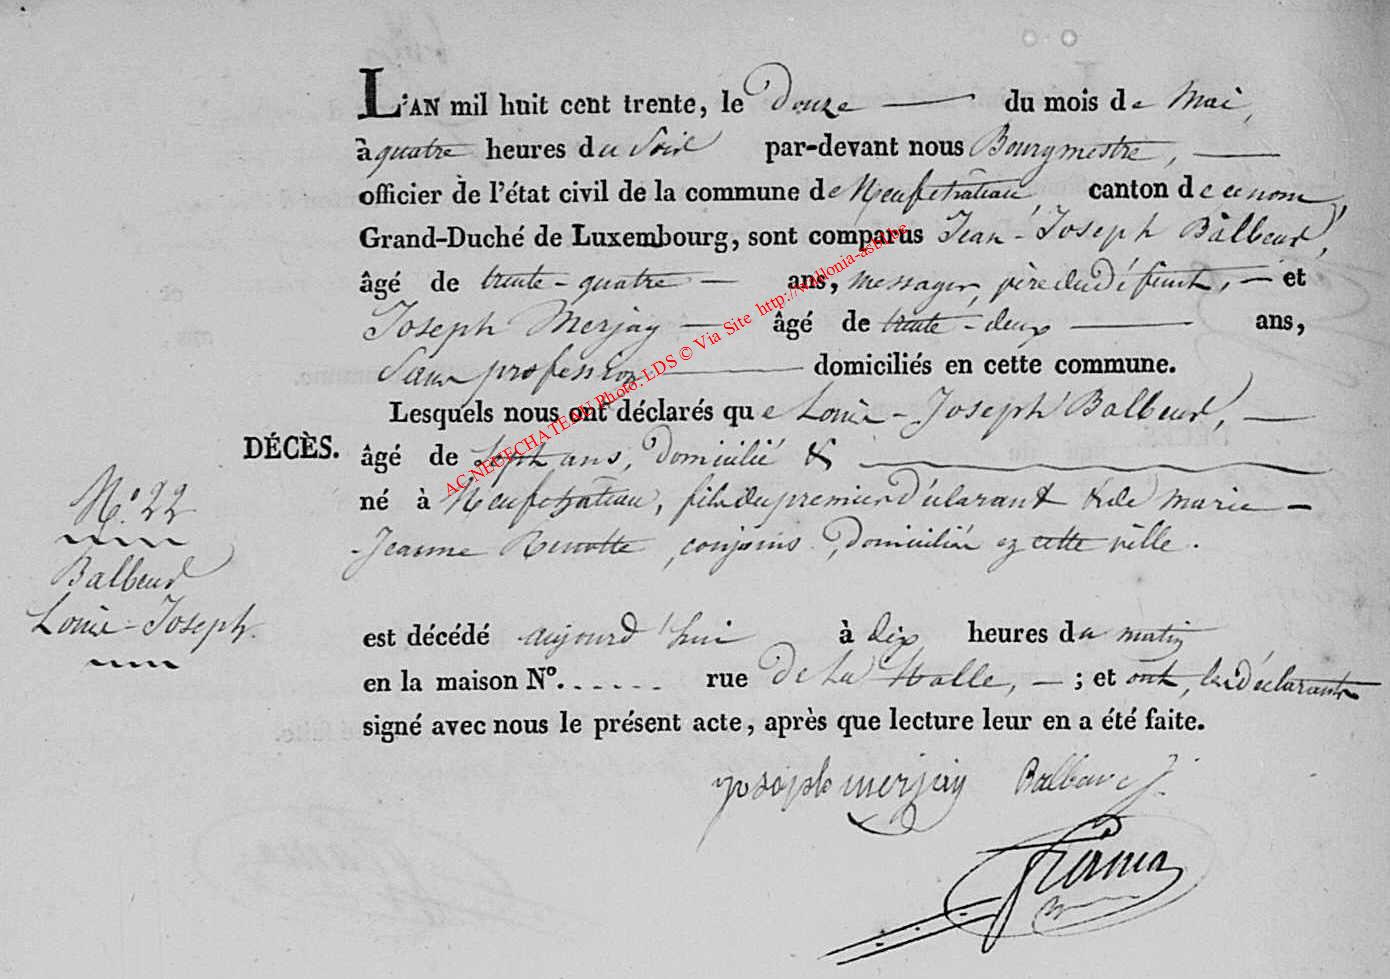 L'AN mil huit cent trente, le Douze du mois de Mai,
à quatre heures du Soir par-devant nous Bourgmestre,
officier de l'état civil de la commune de Neufchâteau, canton de ce nom,
Grand-Duché de Luxembourg, sont comparus Jean-Joseph Balbeur,
âgé de trente-quatre ans, messager, père du défunt, et
Joseph Merjay âgé de trente-deux ans,
Sans profession domiciliés en cette commune.
Lesquels nous ont déclarés que Louis-Joseph Balbeur,
DÉCÈS.
âgé de sept ans, Domicilié &
né à Neufchâteau, fils du premier déclarant & de marie-
Jeanne Renotte, conjoints, Domiciliés en cette ville.
N.º 22
Balbeur
Louis-Joseph.
est décédé aujourd'hui à dix heures du matin
en la maison Nº. ...... rue De la Halle, ; et ont, les déclarants
signé avec nous le présent acte, après que lecture leur en a été faite.
joseph merjay Balbeur j.
AC NEUFCHATEAU Photo: LDS © Via Site http://wallonia-asbl.be